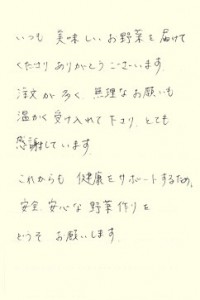 いつも 美味しいお野菜を届けて
くださり ありがとう ございます.
注文が多く 無理なお願いも
温かく受け入れて下さり.とても
感謝しています.
これからも 健康をサポートするため,
安全.安心な野菜作りを
どうぞ お願いします.